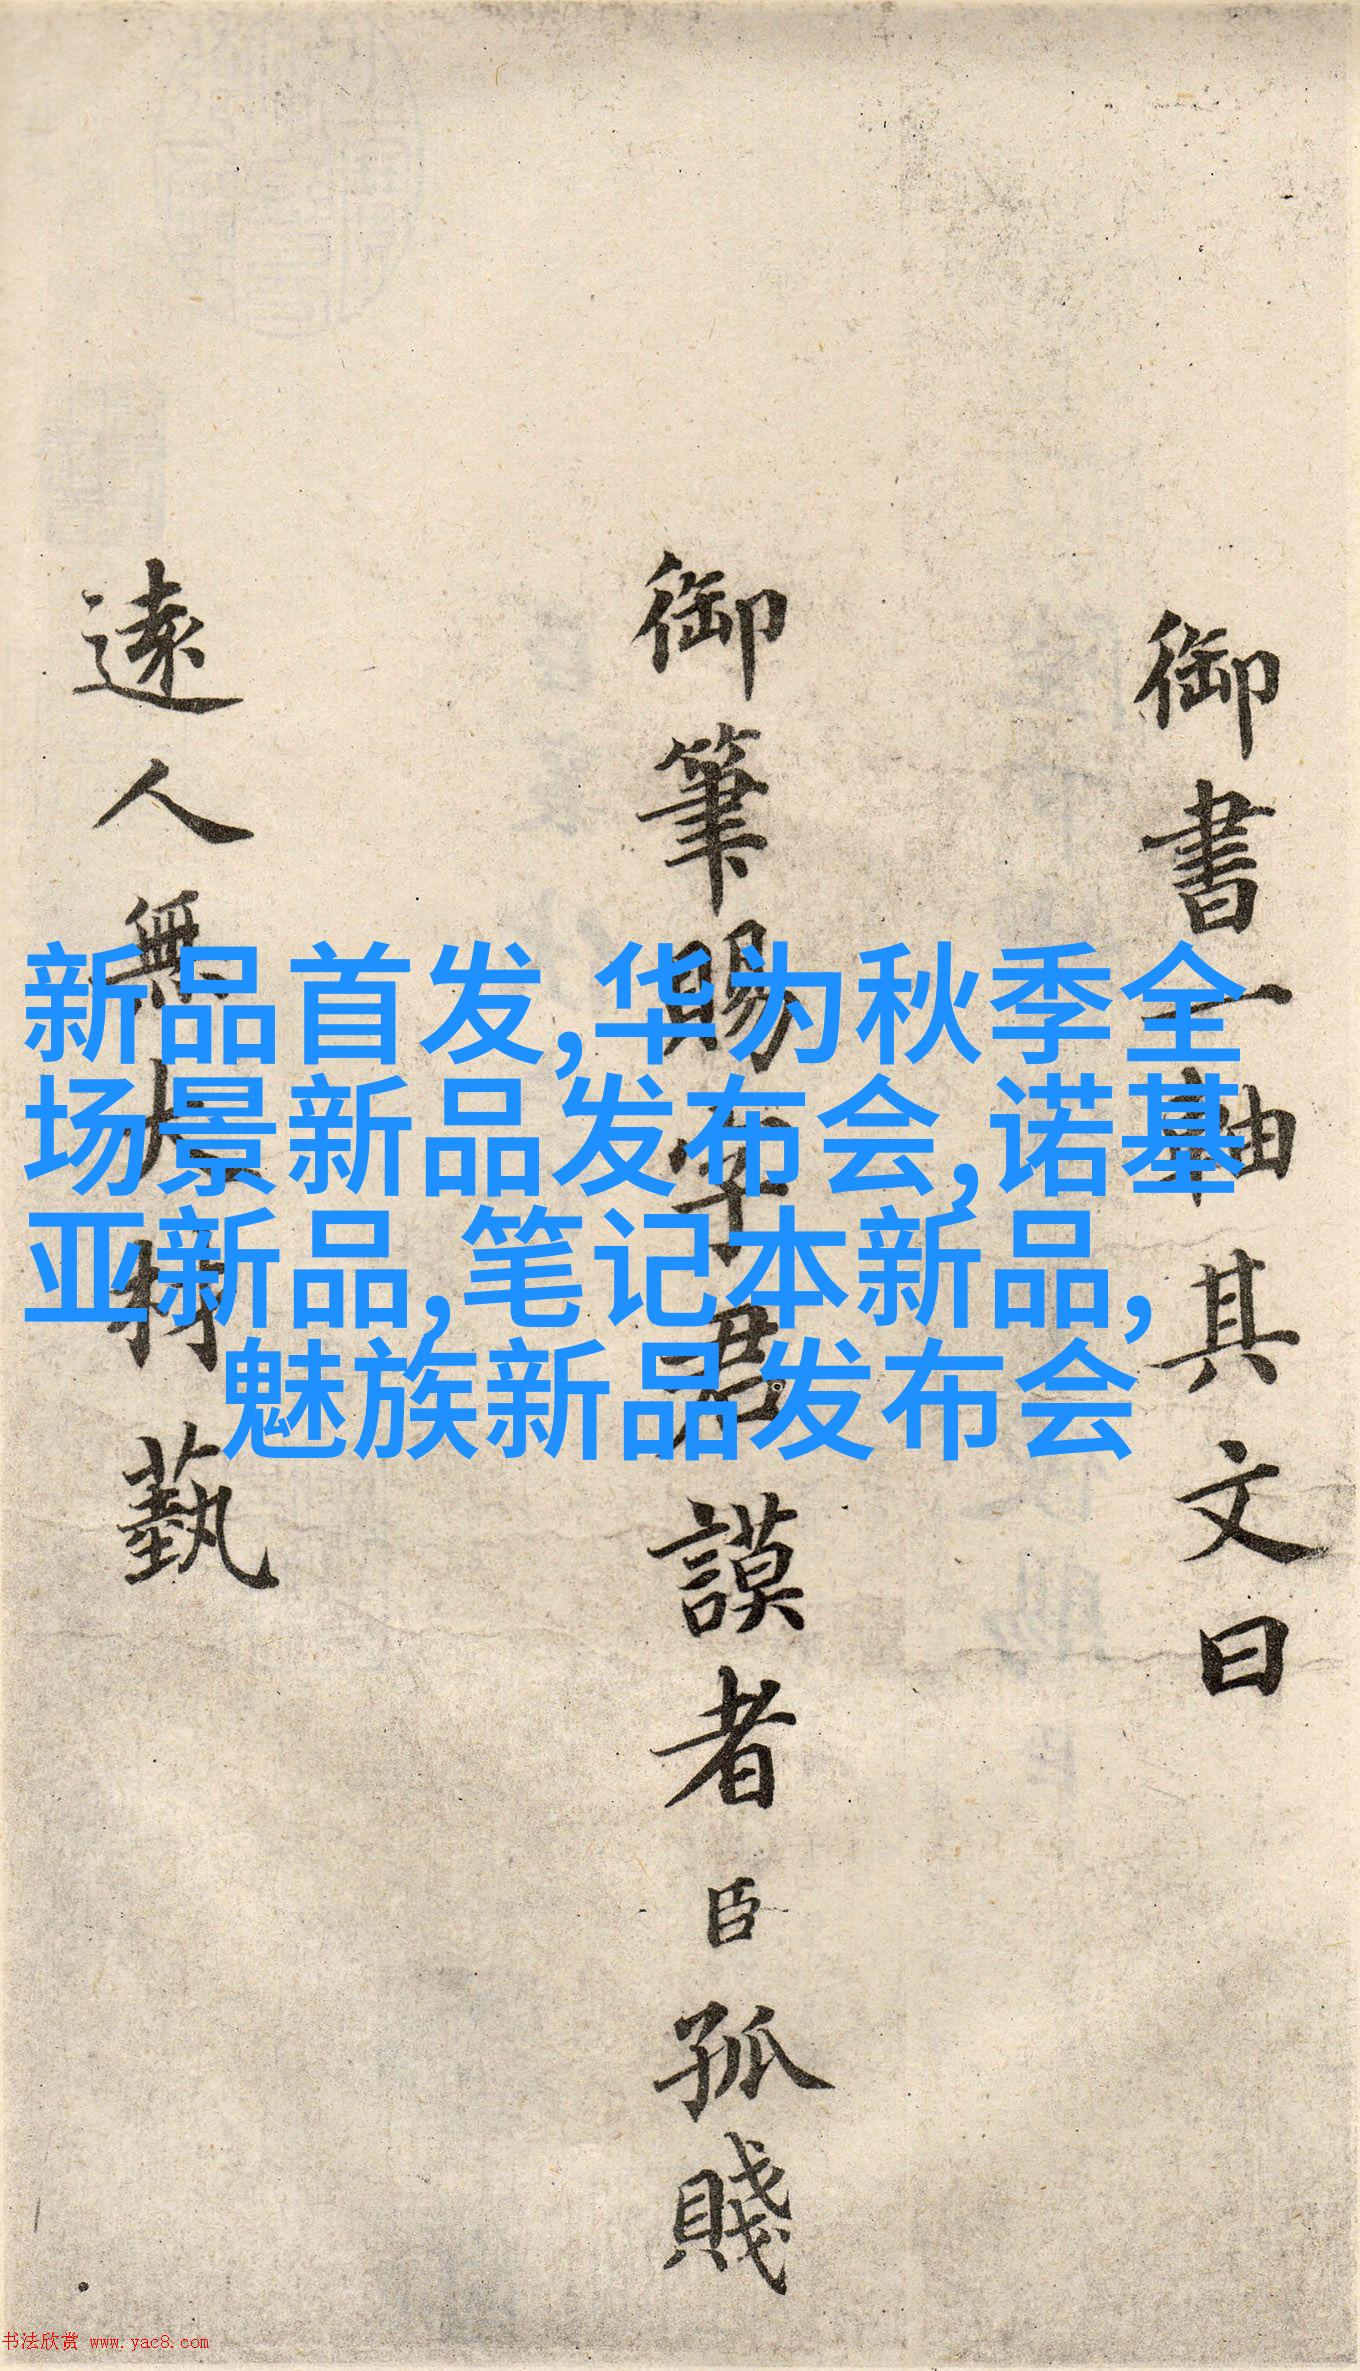 御書一軸其文曰
御筆賜字君謨者臣孤賤
遠人無大材藝
新品首发,华为秋季全
场景新品发布会,诺基
亚新品,笔记本新品,
魅族新品发布会
书法欣赏 www.yac8.com